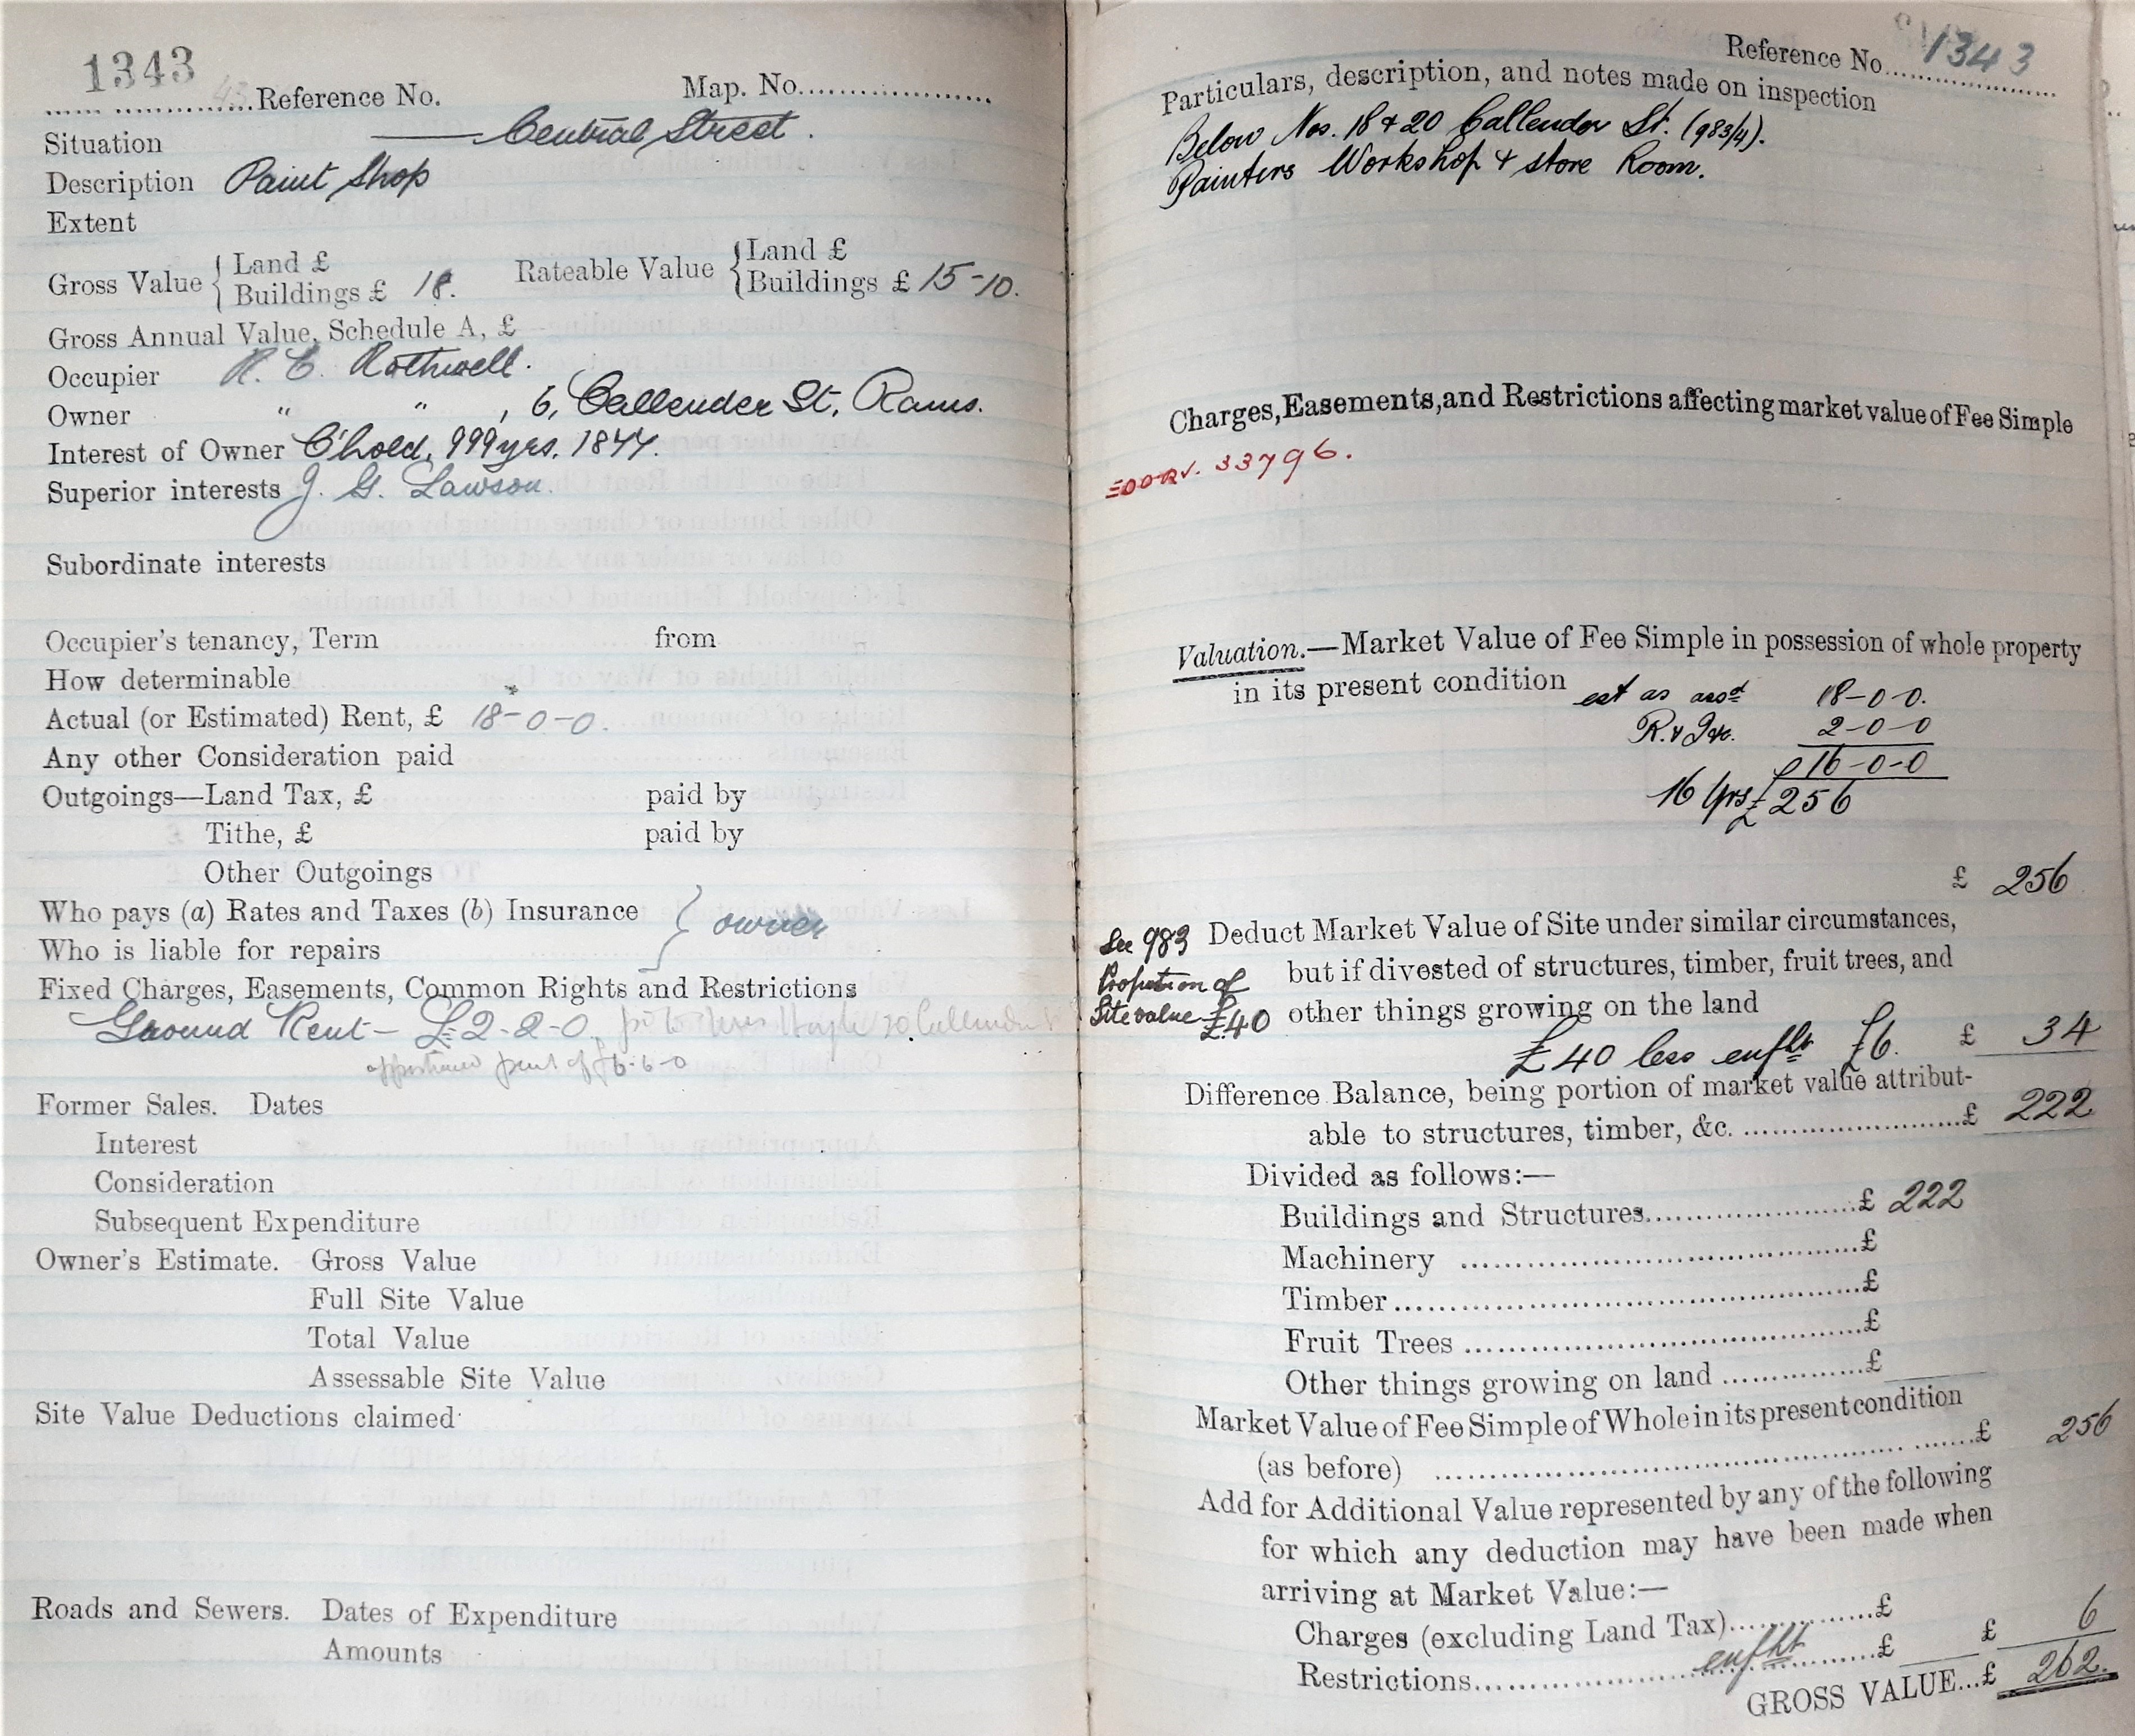 1343
Reference No. Map. No.
Situation Central Street.
Description Paint Shop
Extent
Gross Value { Land £
Buildings £ 18.
Rateable Value { Land £
Buildings £ 15-10.
Gross Annual Value, Schedule A, £
Occupier R. C. Rothwell.
Owner " " , 6, Callender St, Rams.
Interest of Owner C'hold, 999 yrs, 1844.
Superior interests J. G. Lawson.
Subordinate interests
Occupier's tenancy, Term from
How determinable
Actual (or Estimated) Rent, £ 18-0-0.
Any other Consideration paid
Outgoings—Land Tax, £ paid by
Tithe, £ paid by
Other Outgoings
Who pays (a) Rates and Taxes (b) Insurance } owner
Who is liable for repairs
Fixed Charges, Easements, Common Rights and Restrictions
Ground Rent - £2-2-0
apportioned part of £6-6-0
Former Sales. Dates
Interest
Consideration
Subsequent Expenditure
Owner's Estimate. Gross Value
Full Site Value
Total Value
Assessable Site Value
Site Value Deductions claimed
Roads and Sewers. Dates of Expenditure
Amounts
Reference No. 1343
Particulars, description, and notes made on inspection
Below Nos. 18 & 20 Callender St. (983/4).
Painters Workshop & store Room.
Charges, Easements, and Restrictions affecting market value of Fee Simple
33796.
Valuation.—Market Value of Fee Simple in possession of whole property
in its present condition est as assd 18-0-0.
2-0-0
£16-0-0
16 Yrs £256
£ 256
See 983
Proportion of
Site value £40
Deduct Market Value of Site under similar circumstances,
but if divested of structures, timber, fruit trees, and
other things growing on the land
£40 less enfht £6. £ 34
Difference Balance, being portion of market value attribut-
able to structures, timber, &c. £ 222
Divided as follows:—
Buildings and Structures £ 222
Machinery £
Timber £
Fruit Trees £
Other things growing on land £
Market Value of Fee Simple of Whole in its present condition
(as before) £ 256
Add for Additional Value represented by any of the following
for which any deduction may have been made when
arriving at Market Value:—
Charges (excluding Land Tax) £
Restrictions enfht £ £ 6
GROSS VALUE...£ 262.